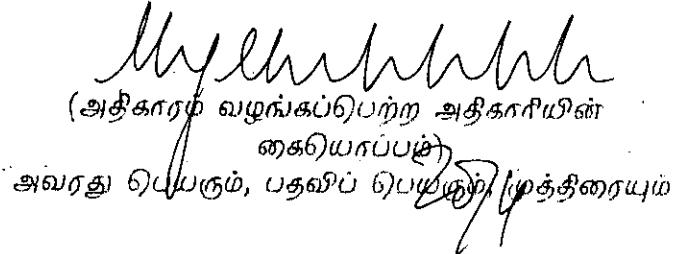 (அதிகாரம் வழங்கப்பெற்ற அதிகாரியின்
கையொப்பம்)
அவரது பெயரும், பதவிப் பெயரும், முத்திரையும்